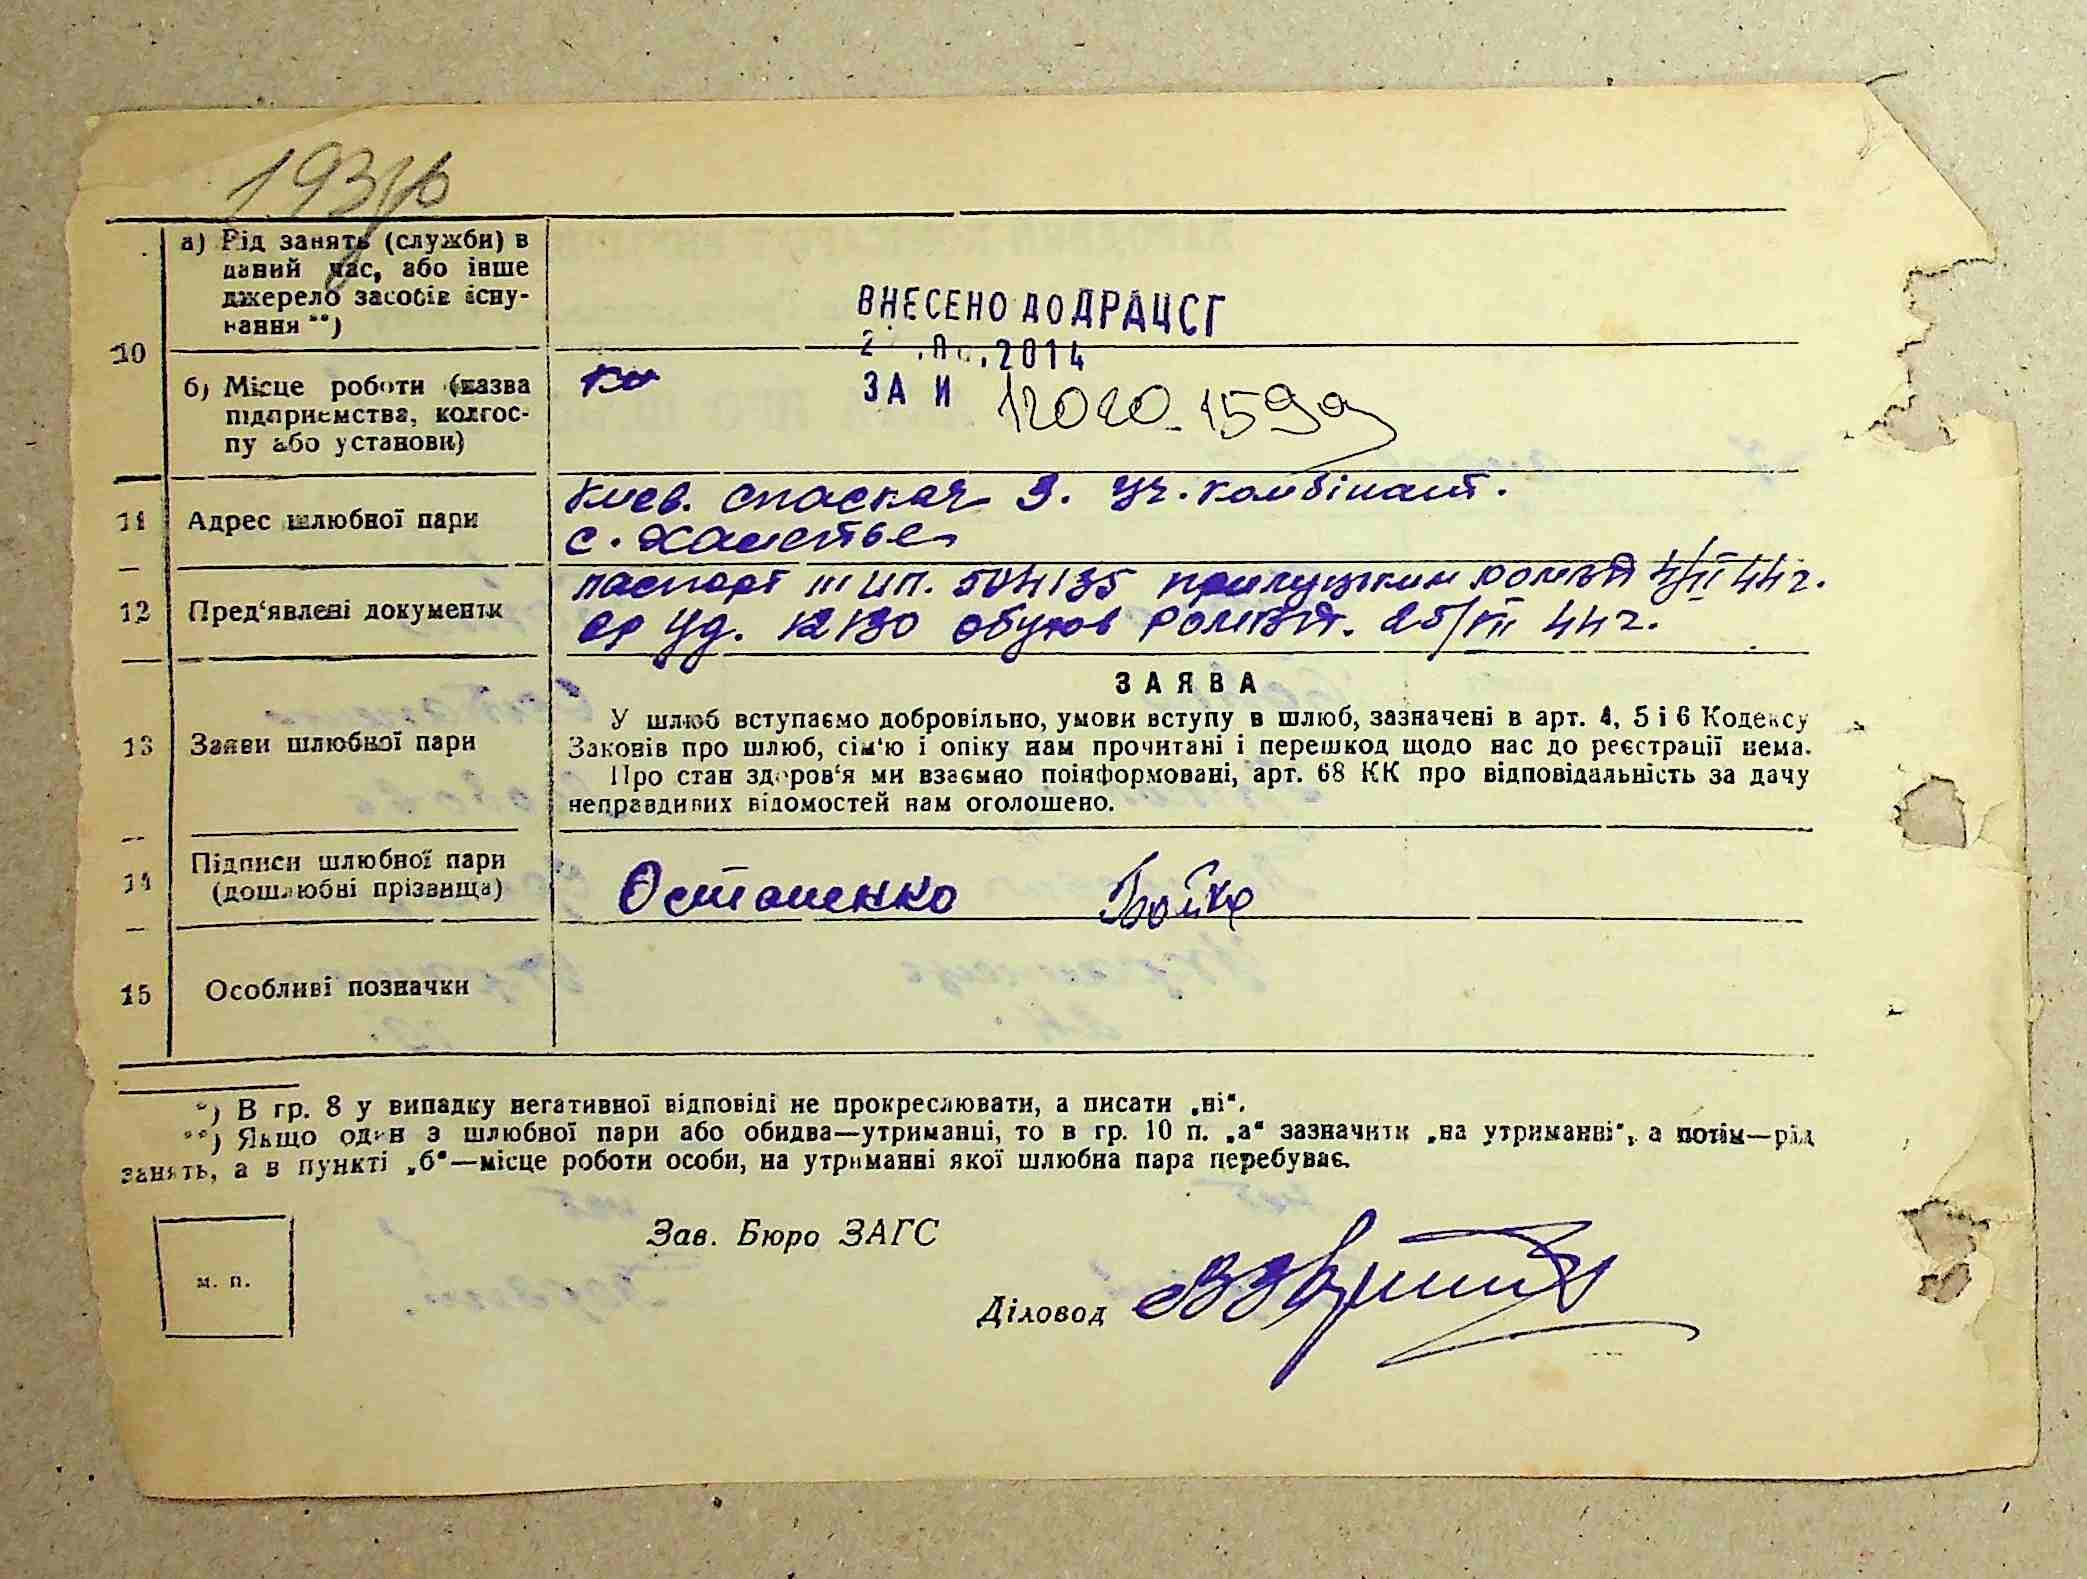 10
а) Рід занять (служби) в
даний час, або інше
джерело засобів існу-
вання **)
ВНЕСЕНО ДО ДРАЦСГ
2014
ЗА И 12020-159
б) Місце роботи (назва
підприємства, колгос-
пу або установи)
11
Адрес шлюбної пари
Киев. Спаская 9. Уч. комбінат.
с.
12
Пред'явлені документи
паспорт III ИП. 504135 44 г.
Уд. 12130 Обухов 25/III 44 г.
13
Заяви шлюбної пари
ЗАЯВА
У шлюб вступаємо добровільно, умови вступу в шлюб, зазначені в арт. 4, 5 і 6 Кодексу
Законів про шлюб, сім'ю і опіку нам прочитані і перешкод щодо нас до реєстрації нема.
Про стан здоров'я ми взаємно поінформовані, арт. 68 КК про відповідальність за дачу
неправдивих відомостей нам оголошено.
14
Підписи шлюбної пари
(дошлюбні прізвища)
Остапенко Бойко
15
Особливі позначки
*) В гр. 8 у випадку негативної відповіді не прокреслювати, а писати „ні".
**) Якщо один з шлюбної пари або обидва—утриманці, то в гр. 10 п. „а" зазначити „на утриманні", а потім—рід
занять, а в пункті „б"—місце роботи особи, на утриманні якої шлюбна пара перебуває.
м. п.
Зав. Бюро ЗАГС
Діловод